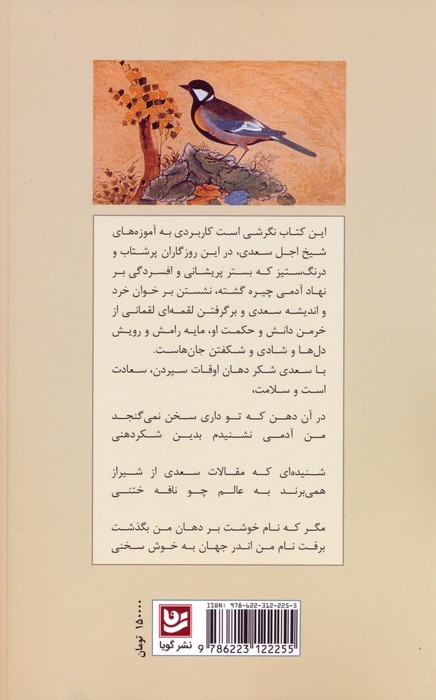 این کتاب نگرشی است کاربردی به آموزه‌های
شیخ اجل سعدی، در این روزگاران پرشتاب و
درنگ‌ستیز که بستر پریشانی و افسردگی بر
نهاد آدمی چیره گشته، نشستن بر خوان خرد
و اندیشه سعدی و برگرفتن لقمه‌ای لقمانی از
خرمن دانش و حکمت او، مایه رامش و رویش
دل‌ها و شادی و شکفتن جان‌هاست.
با سعدی شکر دهان اوقات سپردن، سعادت
است و سلامت،
در آن دهن که تو داری سخن نمی‌گنجد
من آدمی نشنیدم بدین شکردهنی
شنیده‌ای که مقالات سعدی از شیراز
همی‌برند به عالم چو نافه ختنی
مگر که نام خوشت بر دهان من بگذشت
برفت نام من اندر جهان به خوش سخنی
ISBN: 978-622-312-225-5
9 786223 122255
نشر گویا
۱۵۰۰۰۰ تومان